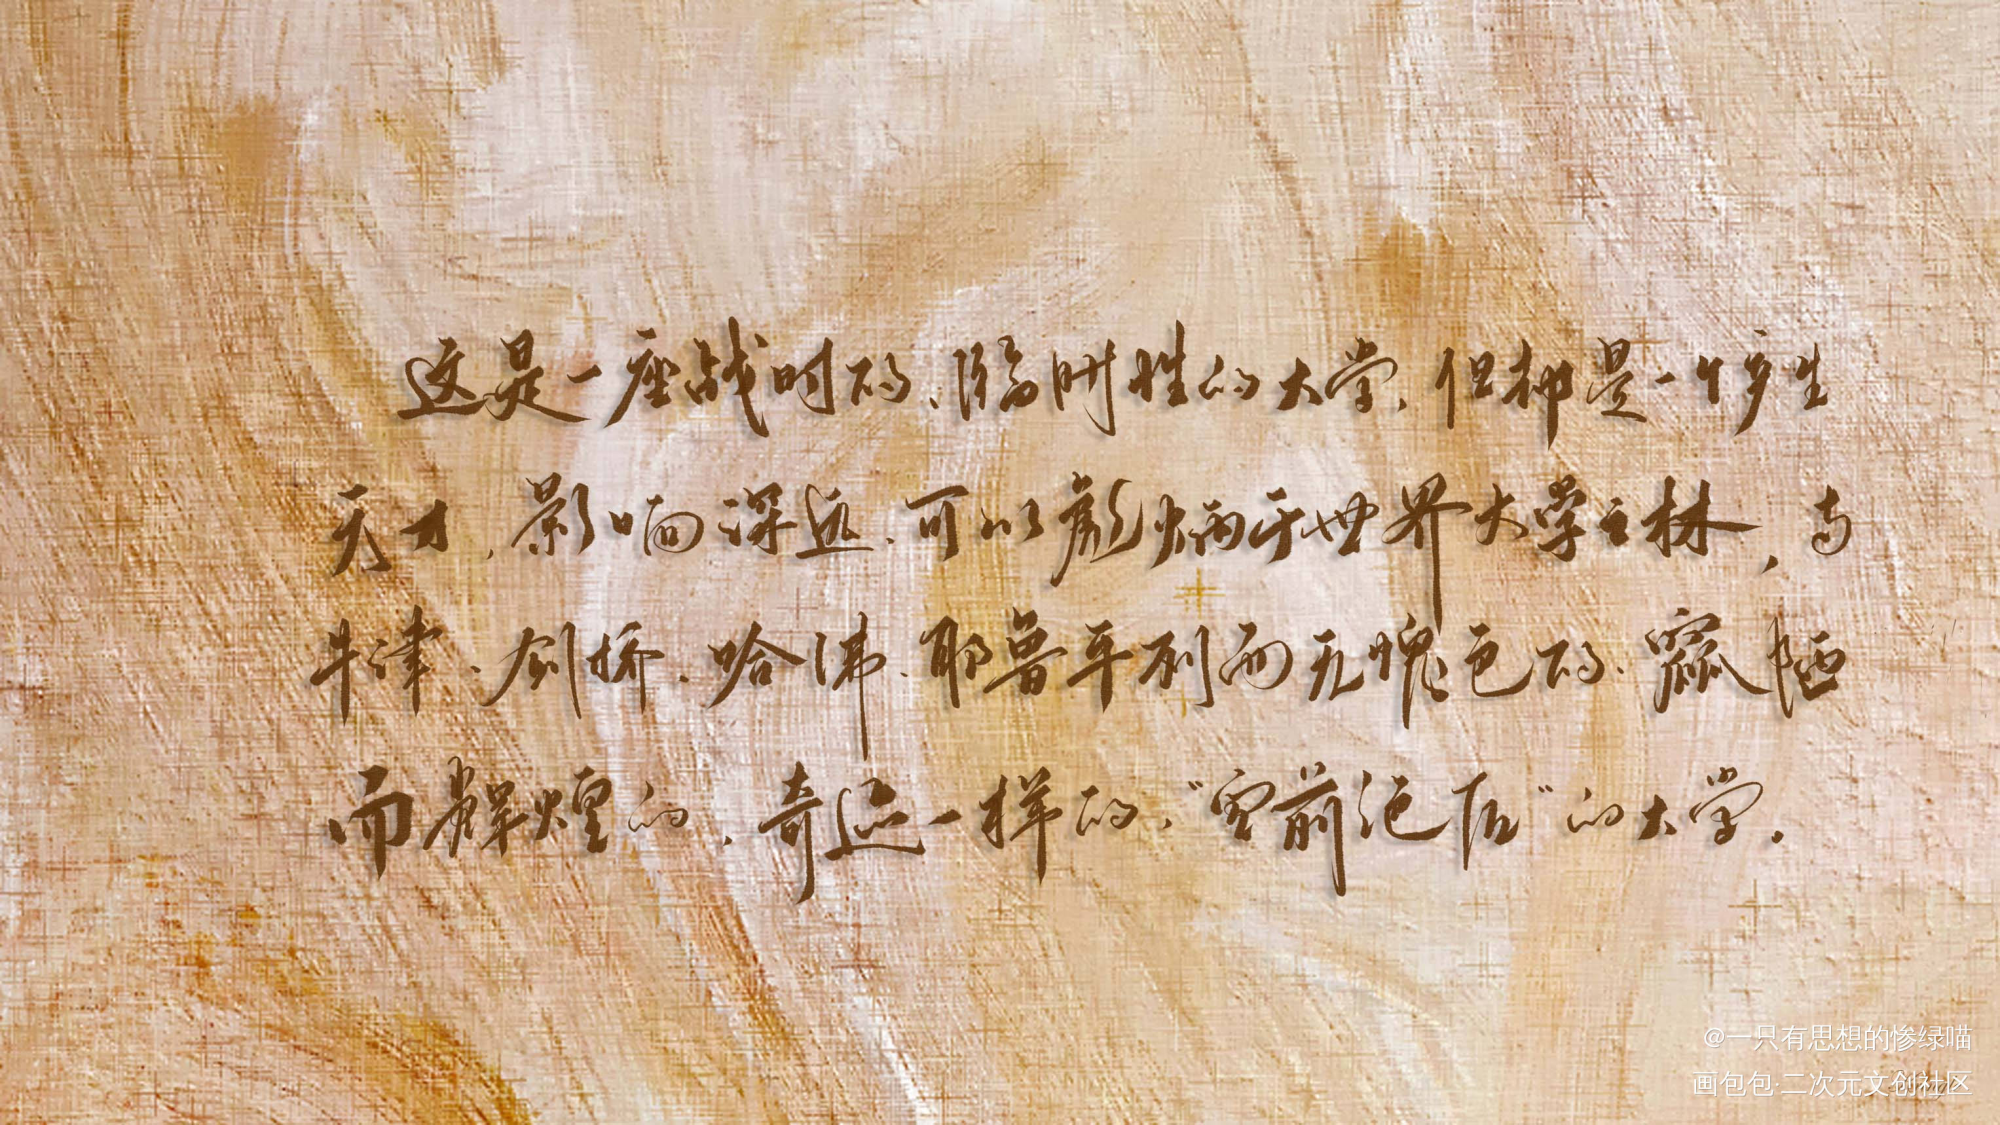 这是一座战时的、临时性的大学，但却是一个产生
天才，影响深远，可以彪炳于世界大学之林，与
牛津、剑桥、哈佛、耶鲁平列而无愧色的，窳陋
而辉煌的，奇迹一样的，“空前绝后”的大学。
@一只有思想的惨绿喵
画包包·二次元文创社区